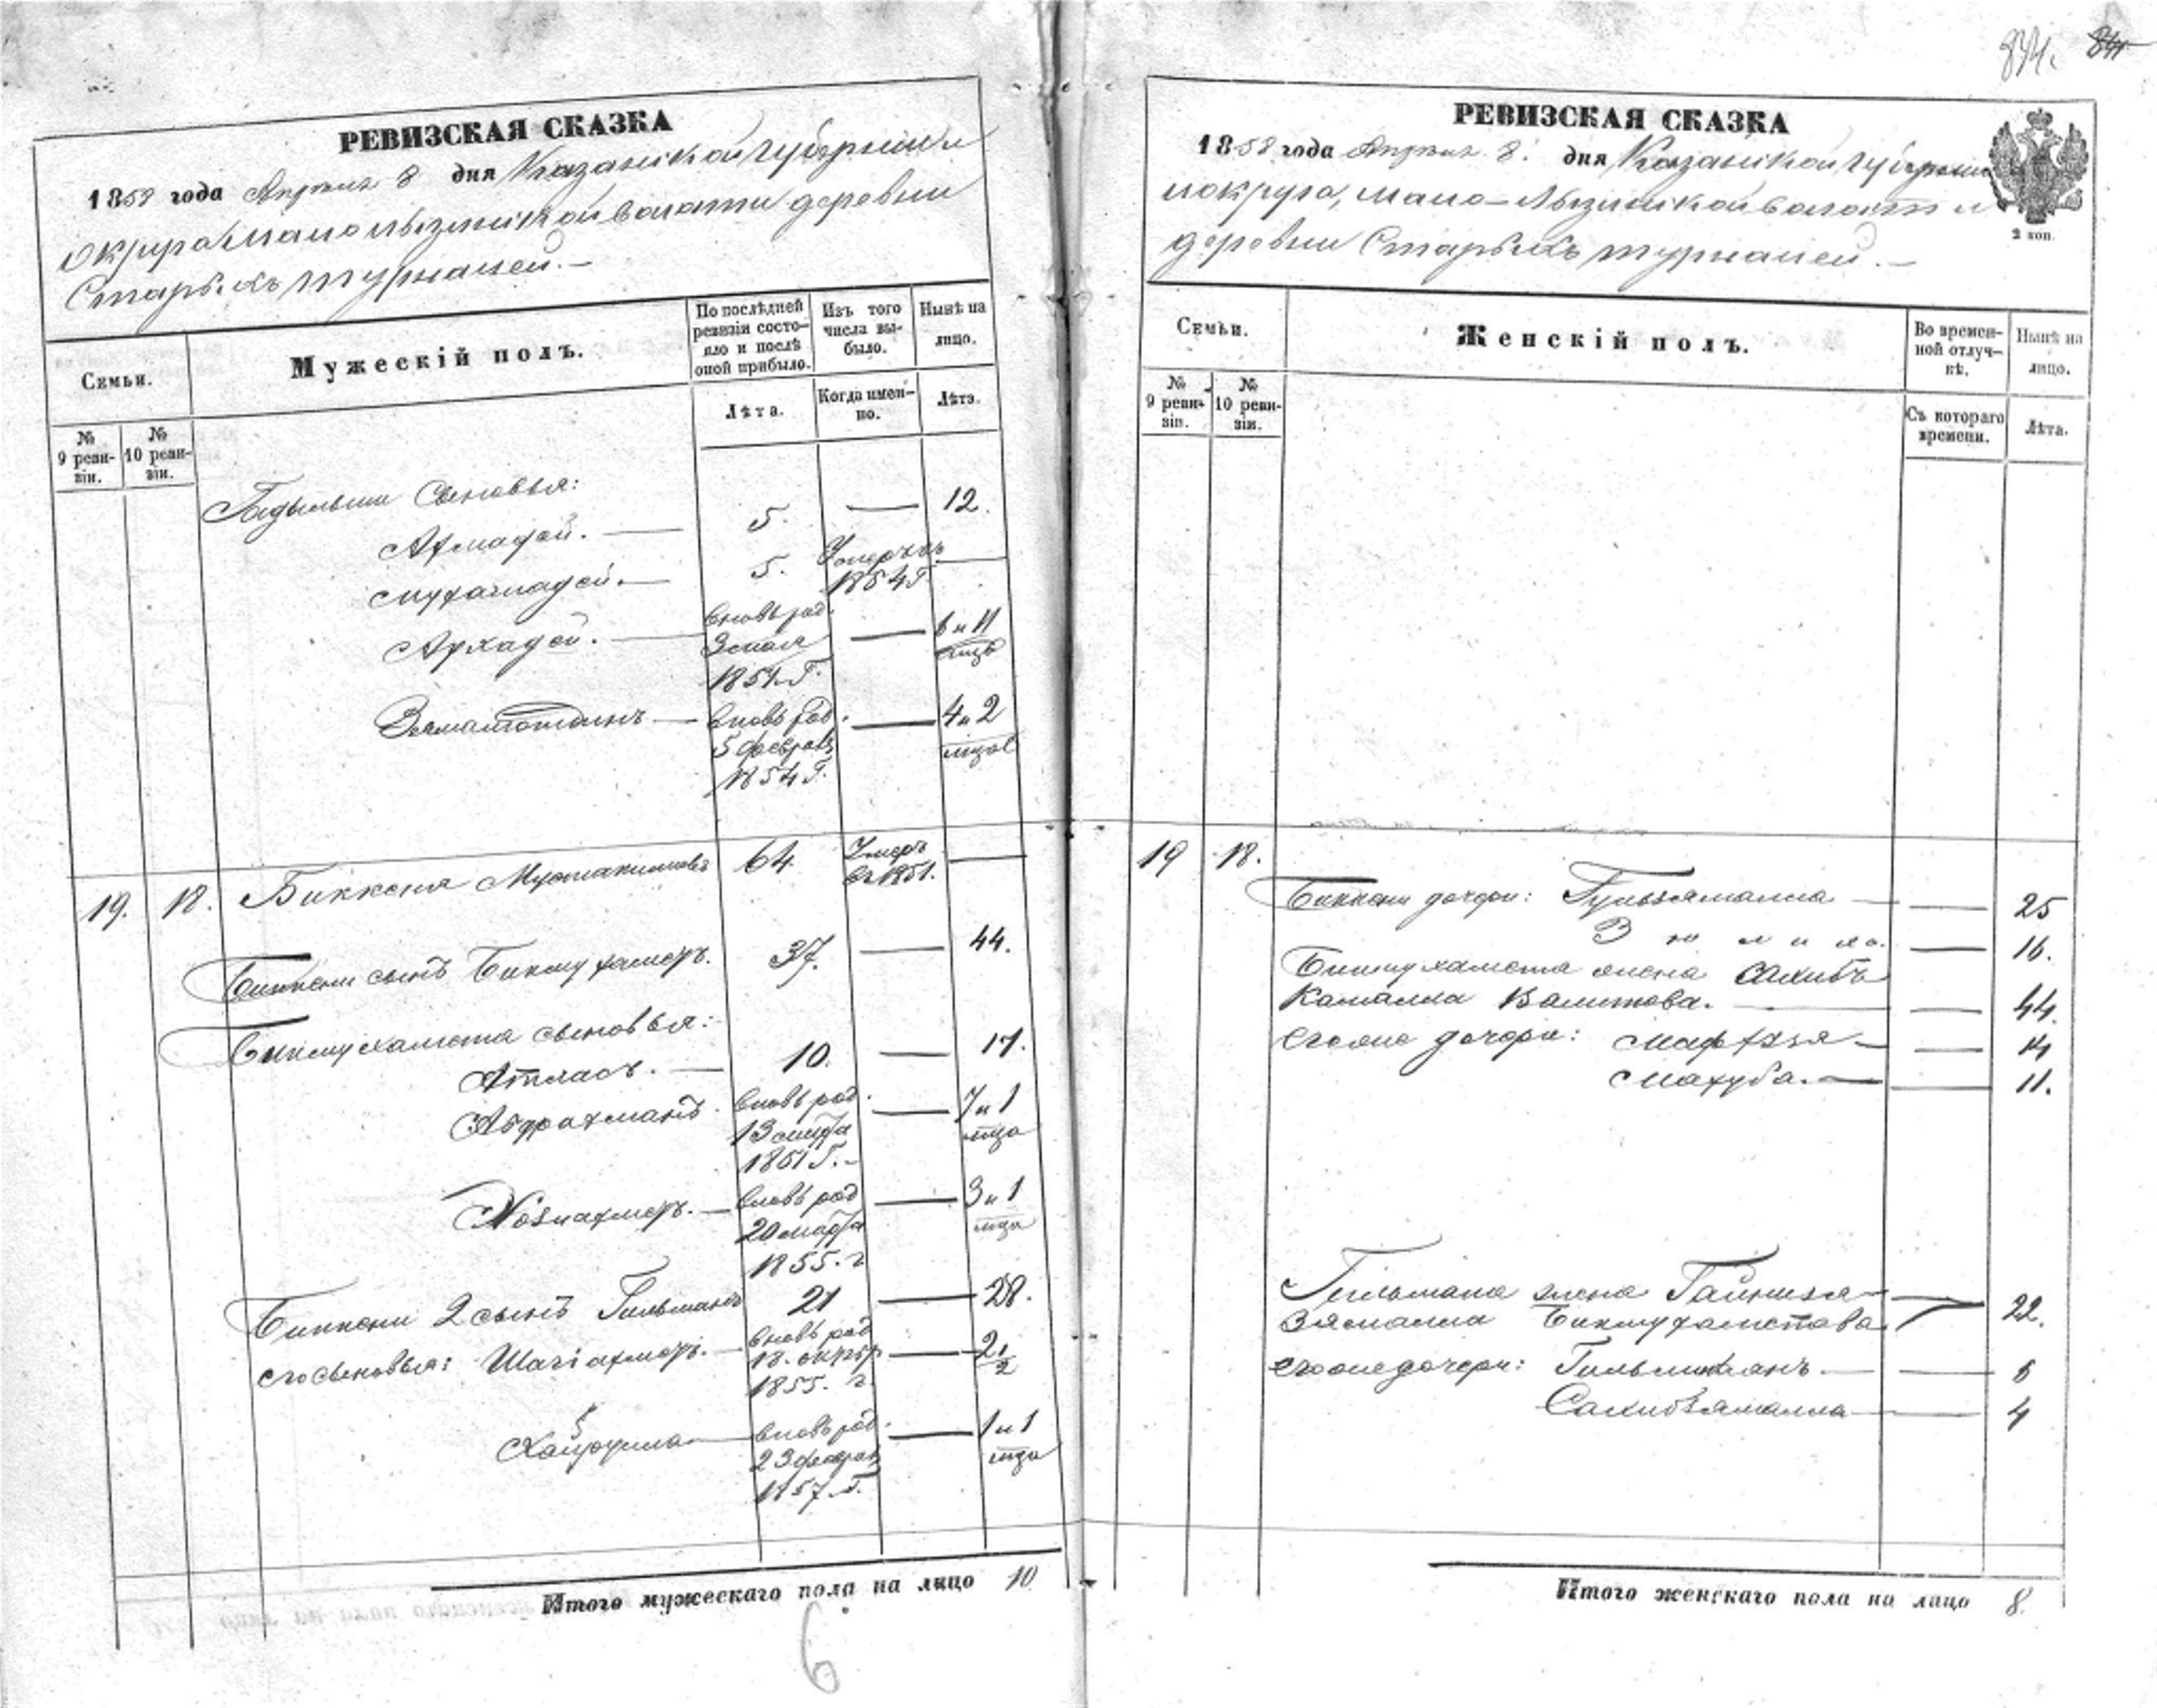 РЕВИЗСКАЯ СКАЗКА
1858 года Апреля 8 дня Казанской Губернии
округа Мало Лызинской волости деревни
Старыхъ Турналей.
Семьи.
Мужескій полъ.
По послѣдней ревизіи состояло и послѣ оной прибыло.
Изъ того числа выбыло.
Нынѣ на лицо.
Лѣта.
Когда именно.
Лѣта.
№ 9 ревизіи.
№ 10 ревизіи.
сыновья:
Ахмадей. — 5. — 12.
Мухамадей. — 5. Умеръ въ 1854 г. —
вновь род. 3 мая 1851 г. — 6 и 11 мцъ
вновь род. 5 февраля 1854 г. — 4 и 2 мцов
19. 18. Биккеня Мустакимовъ 64 Умеръ въ 1851. —
Биккени сынъ Бикмухаметъ. 37. — 44.
Бикмухамета сыновья:
Атласъ. — 10. — 17.
Абдрахманъ. вновь род. 13 марта 1851 г. — 7 и 1 мца
Хозиахметъ. — вновь род 20 марта 1855. г — 3 и 1 мца
Биккени 2 сынъ Гильманъ 21 — 28.
его сыновья: Шагіахметъ. — вновь род 18. октбр 1855. г. — 2 1/2
вновь род. 23 феврал 1857. г. — 1 и 1 мца
Итого мужескаго пола на лицо 10
6
844.
РЕВИЗСКАЯ СКАЗКА
1858 года Апреля 8. дня Казанской Губернии
округа, Мало-Лызинской волости
деревни Старыхъ Турналей. —
2 коп.
Семьи.
Женскій полъ.
Во временной отлучкѣ.
Нынѣ на лицо.
Съ котораго времени.
Лѣта.
№ 9 ревизіи.
№ 10 ревизіи.
19 18.
Биккени дочери: Гульзямалла — 25
Зюлиха. — 16.
Бикмухамета жена Сахибъ
Камалла Валитова. — 44.
его же дочери: — 14
Махуба. — 11.
Гильмана жена Гайниза
Зямалла Бикмухаметова — 22.
его же дочери: — 6
Сахибзямалла — 4
Итого женскаго пола на лицо 8.